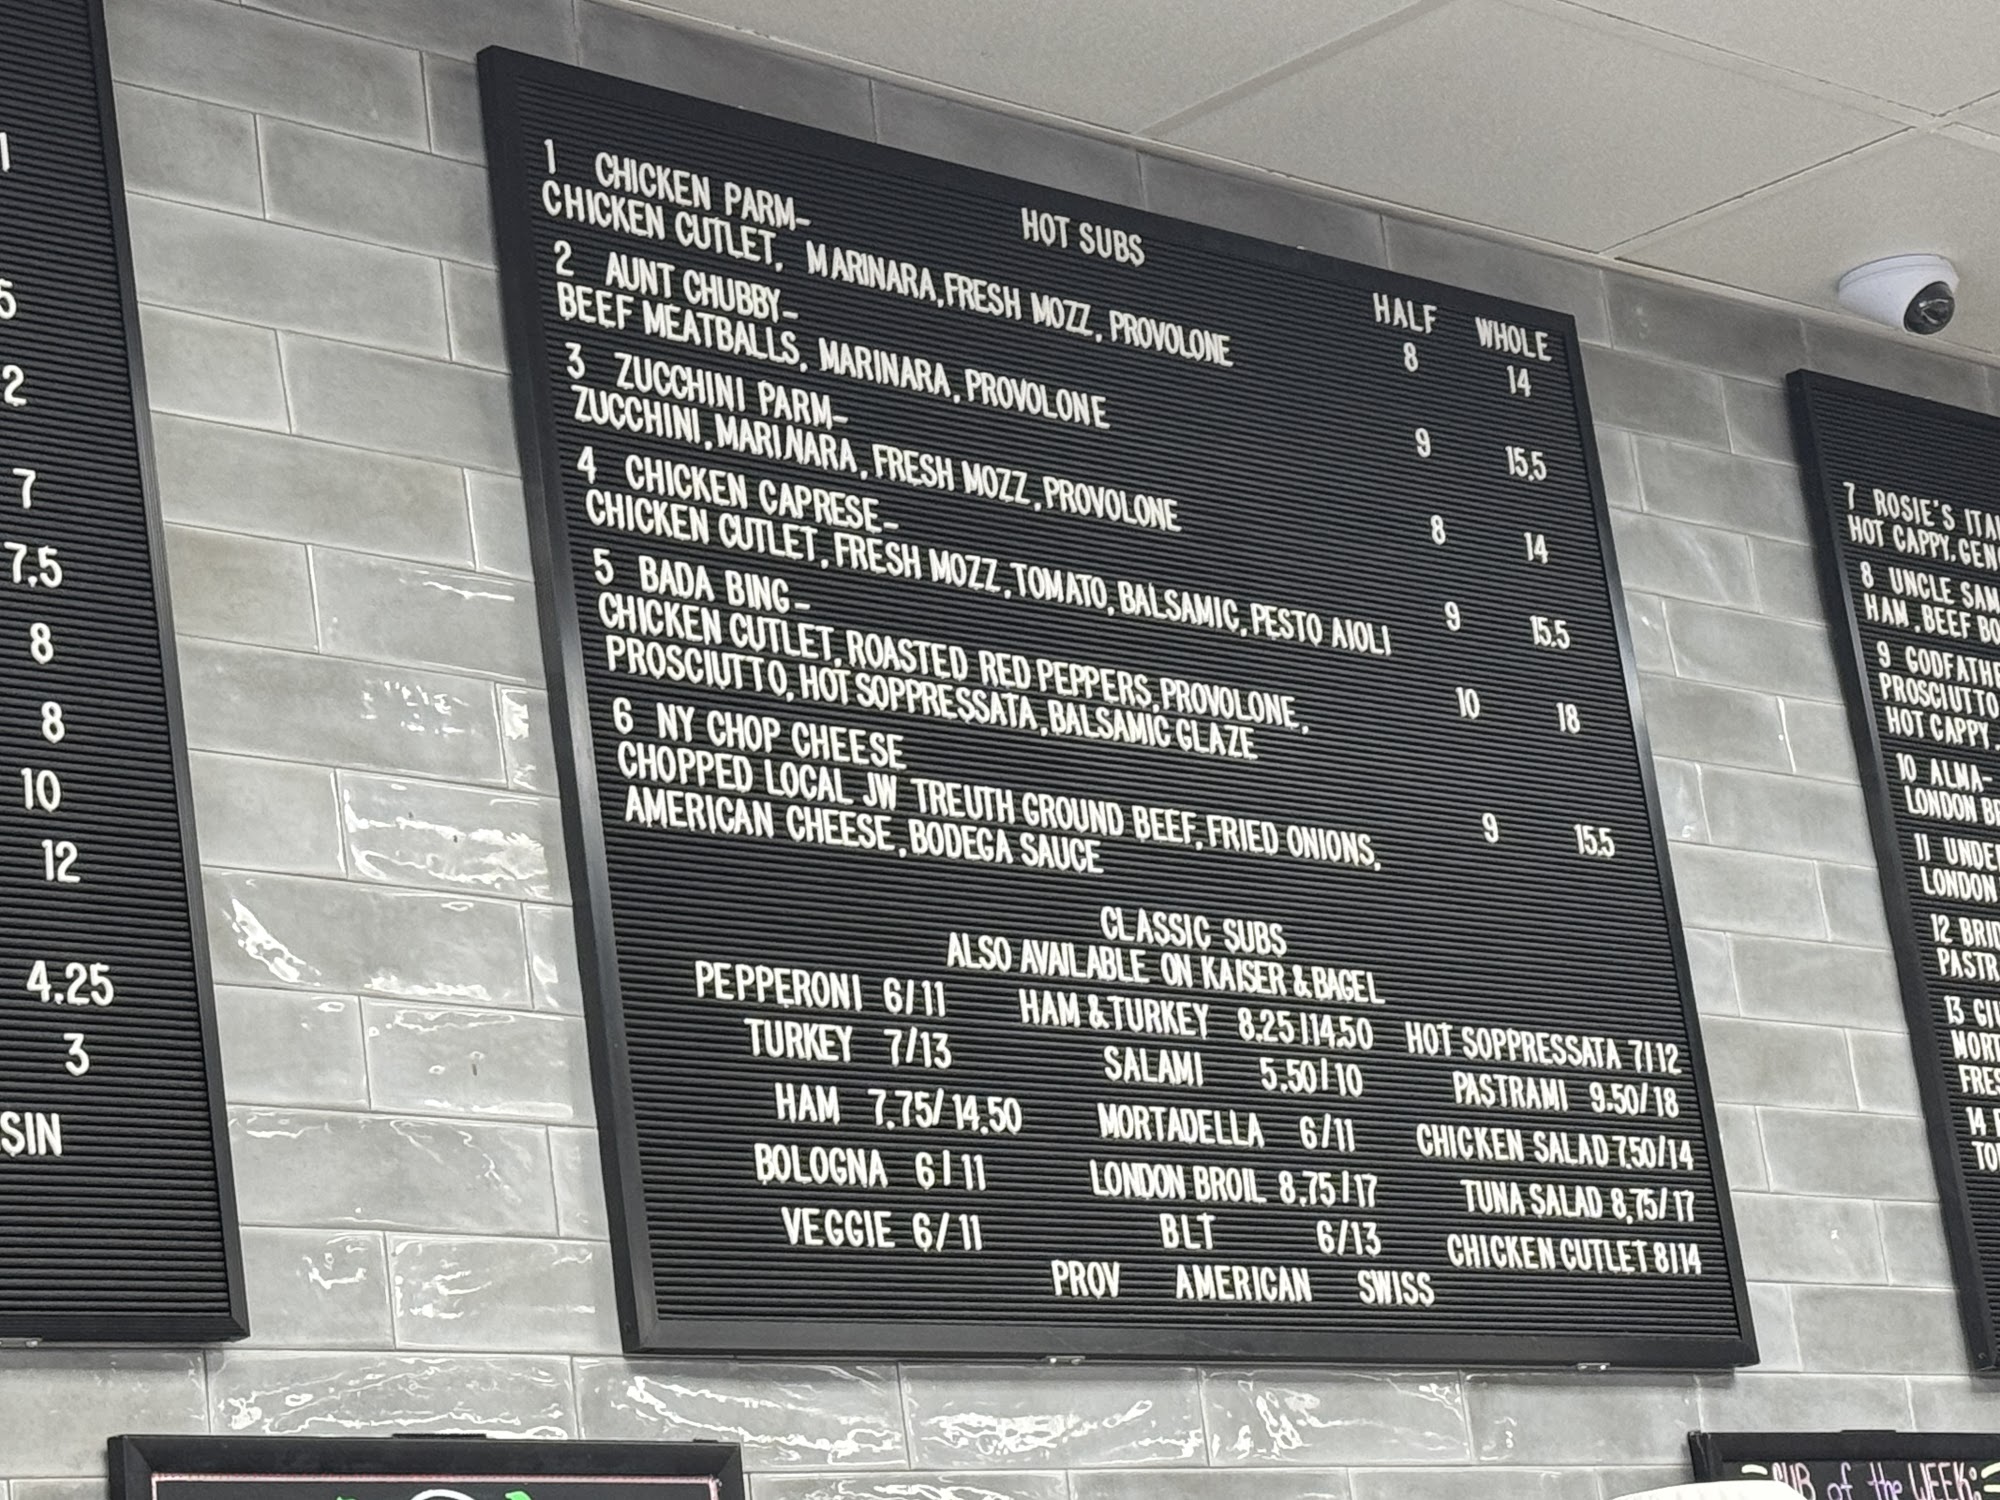 1
5
2
7
7.5
8
8
10
12
4.25
3
SIN
HOT SUBS
HALF WHOLE
1 CHICKEN PARM-
CHICKEN CUTLET, MARINARA, FRESH MOZZ, PROVOLONE 8 14
2 AUNT CHUBBY-
BEEF MEATBALLS, MARINARA, PROVOLONE 9 15.5
3 ZUCCHINI PARM-
ZUCCHINI, MARINARA, FRESH MOZZ, PROVOLONE 8 14
4 CHICKEN CAPRESE-
CHICKEN CUTLET, FRESH MOZZ, TOMATO, BALSAMIC, PESTO AIOLI 9 15.5
5 BADA BING-
CHICKEN CUTLET, ROASTED RED PEPPERS, PROVOLONE, 10 18
PROSCIUTTO, HOT SOPPRESSATA, BALSAMIC GLAZE
6 NY CHOP CHEESE
CHOPPED LOCAL JW TREUTH GROUND BEEF, FRIED ONIONS, 9 15.5
AMERICAN CHEESE, BODEGA SAUCE
CLASSIC SUBS
ALSO AVAILABLE ON KAISER & BAGEL
PEPPERONI 6/11 HAM & TURKEY 8.25/14.50 HOT SOPPRESSATA 7/12
TURKEY 7/13 SALAMI 5.50/10 PASTRAMI 9.50/18
HAM 7.75/14.50 MORTADELLA 6/11 CHICKEN SALAD 7.50/14
BOLOGNA 6/11 LONDON BROIL 8.75/17 TUNA SALAD 8.75/17
VEGGIE 6/11 BLT 6/13 CHICKEN CUTLET 8/14
PROV AMERICAN SWISS
7 ROSIE'S ITA
HOT CAPPY, GEN
8 UNCLE SAM
HAM, BEEF BO
9 GODFATHE
PROSCIUTTO
HOT CAPPY,
10 ALMA-
LONDON BR
11 UNDE
LONDON
12 BRID
PASTR
13 GI
MORT
FRES
14
TO
SUB of the WEEK: